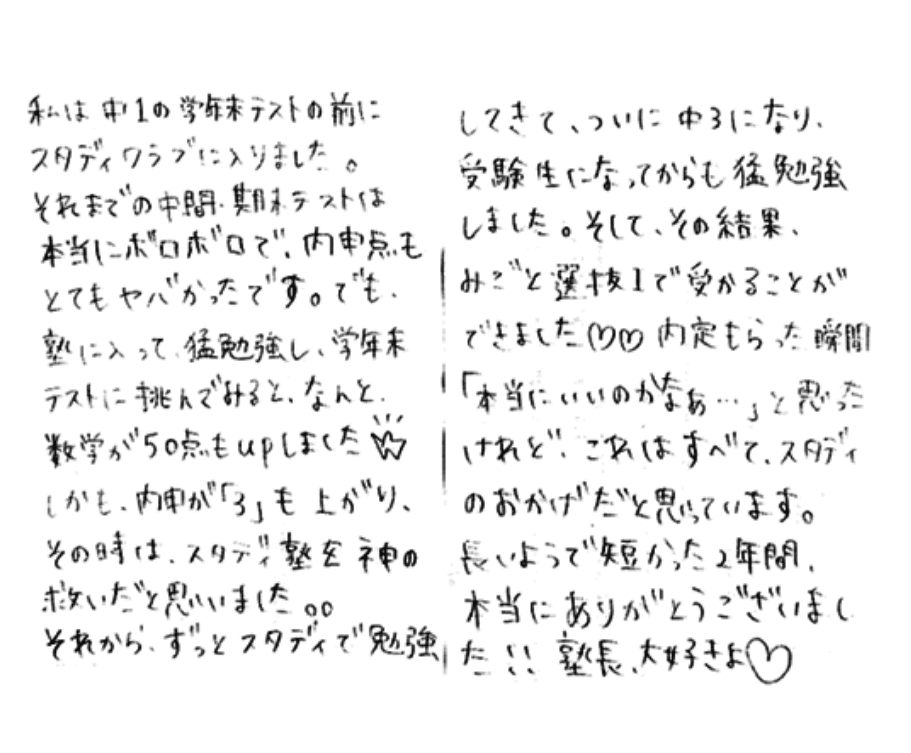 私は中1の学年末テストの前に
スタディクラブに入りました。
それまでの中間・期末テストは
本当にボロボロで、内申点も
とてもヤバかったです。でも、
塾に入って、猛勉強し、学年末
テストに挑んでみると、なんと、
数学が50点もupしました
しかも、内申が「3」も上がり、
その時は、スタディ塾を神の
救いだと思いました。。。
それから、ずっとスタディで勉強
してきて、ついに中3になり、
受験生になってからも猛勉強
しました。そして、その結果、
みごと選抜1で受かることが
できました♡♡内定もらった瞬間
「本当にいいのかなぁ…」と思った
けれど、これはすべて、スタディ
のおかげだと思っています。
長いようで短かった2年間、
本当にありがとうございまし
た!!塾長、大好きよ♡